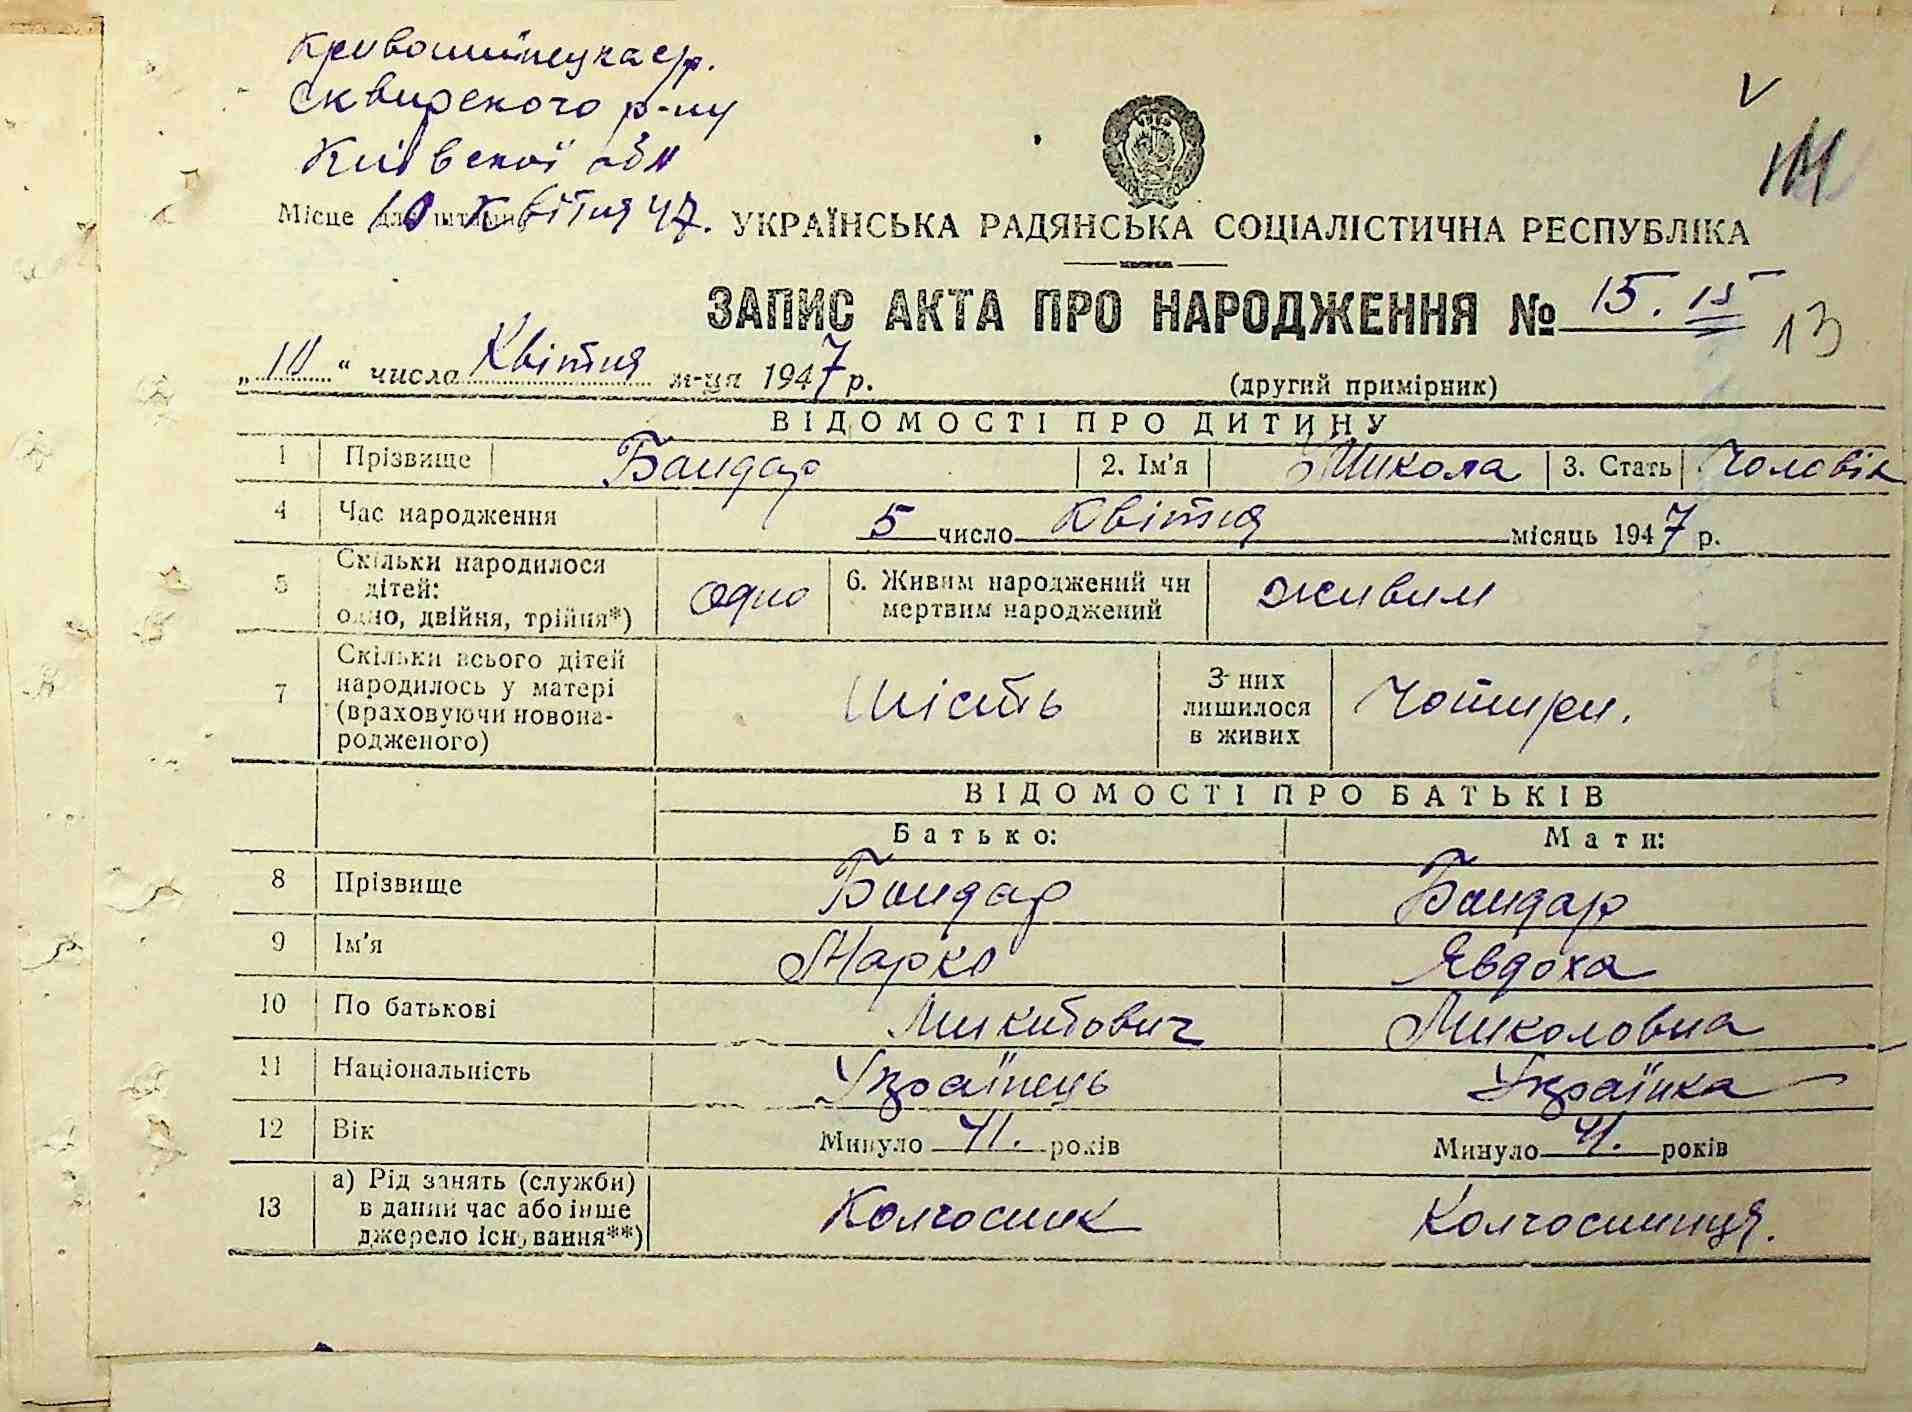 Кривошиїнецька с/р.
Сквирського р-ну
Київської обл
Місце для штампу 10 Квітня 47.
УКРАЇНСЬКА РАДЯНСЬКА СОЦІАЛІСТИЧНА РЕСПУБЛІКА
ЗАПИС АКТА ПРО НАРОДЖЕННЯ № 15. 15
13
„10“ числа Квітня м-ця 1947 р.
(другий примірник)
ВІДОМОСТІ ПРО ДИТИНУ
1 Прізвище Бондар 2. Ім'я Микола 3. Стать Чоловік
4 Час народження 5 число Квітня місяць 1947 р.
5 Скільки народилося дітей: одно, двійня, трійня*) одно 6. Живим народжений чи мертвим народжений живим
7 Скільки всього дітей народилось у матері (враховуючи новонародженого) Шість З них лишилося в живих Чотири.
ВІДОМОСТІ ПРО БАТЬКІВ
Батько: Мати:
8 Прізвище Бондар Бондар
9 Ім'я Марко Явдоха
10 По батькові Микитович Миколовна
11 Національність Українець Українка
12 Вік Минуло 41. років Минуло 41. років
13 а) Рід занять (служби) в даний час або інше джерело існування**) Колгосник Колгосниця.